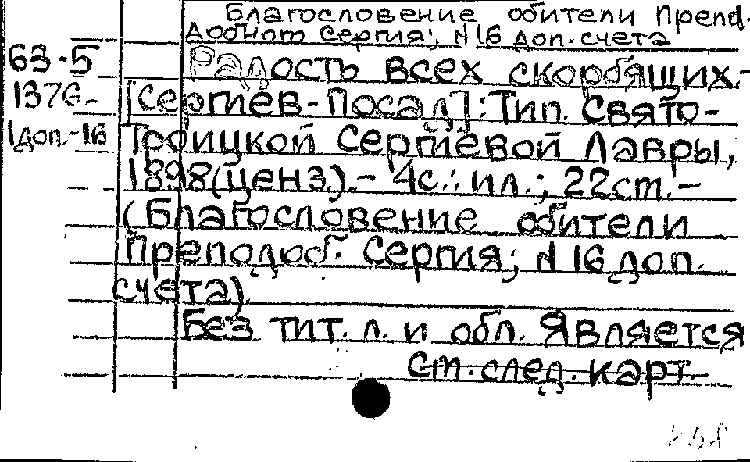 Благословение обители Препо-
добног Сергия; N 16 доп. счета
63-5
1376-
1доп.-16
Радость всех скорбящих.-
[Сергиев-Посад]: Тип. Свято-
Троицкой Сергиевой Лавры,
1898(ценз).- 4с.: ил.; 22cm.-
(Благословение обители
Преподоб. Сергия; N 16 доп.
счета)
Без тит. л. и обл. Является
см. след. карт.